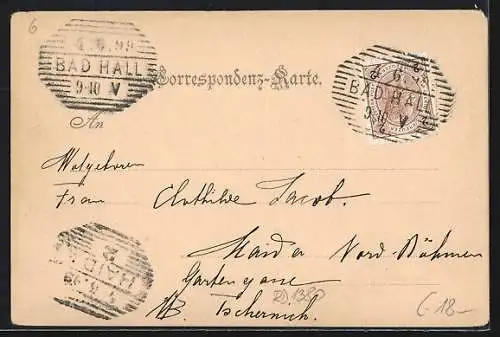 6
4.6.99
BAD HALL
9-10 V
Correspondenz-Karte.
BAD HALL
9-10 V
An
Wolgeboren
Frau Clothilde Jacob.
Haida Nord-Böhmen
Gartengasse
HAIDA
NB. Tschernich.
€ 18-